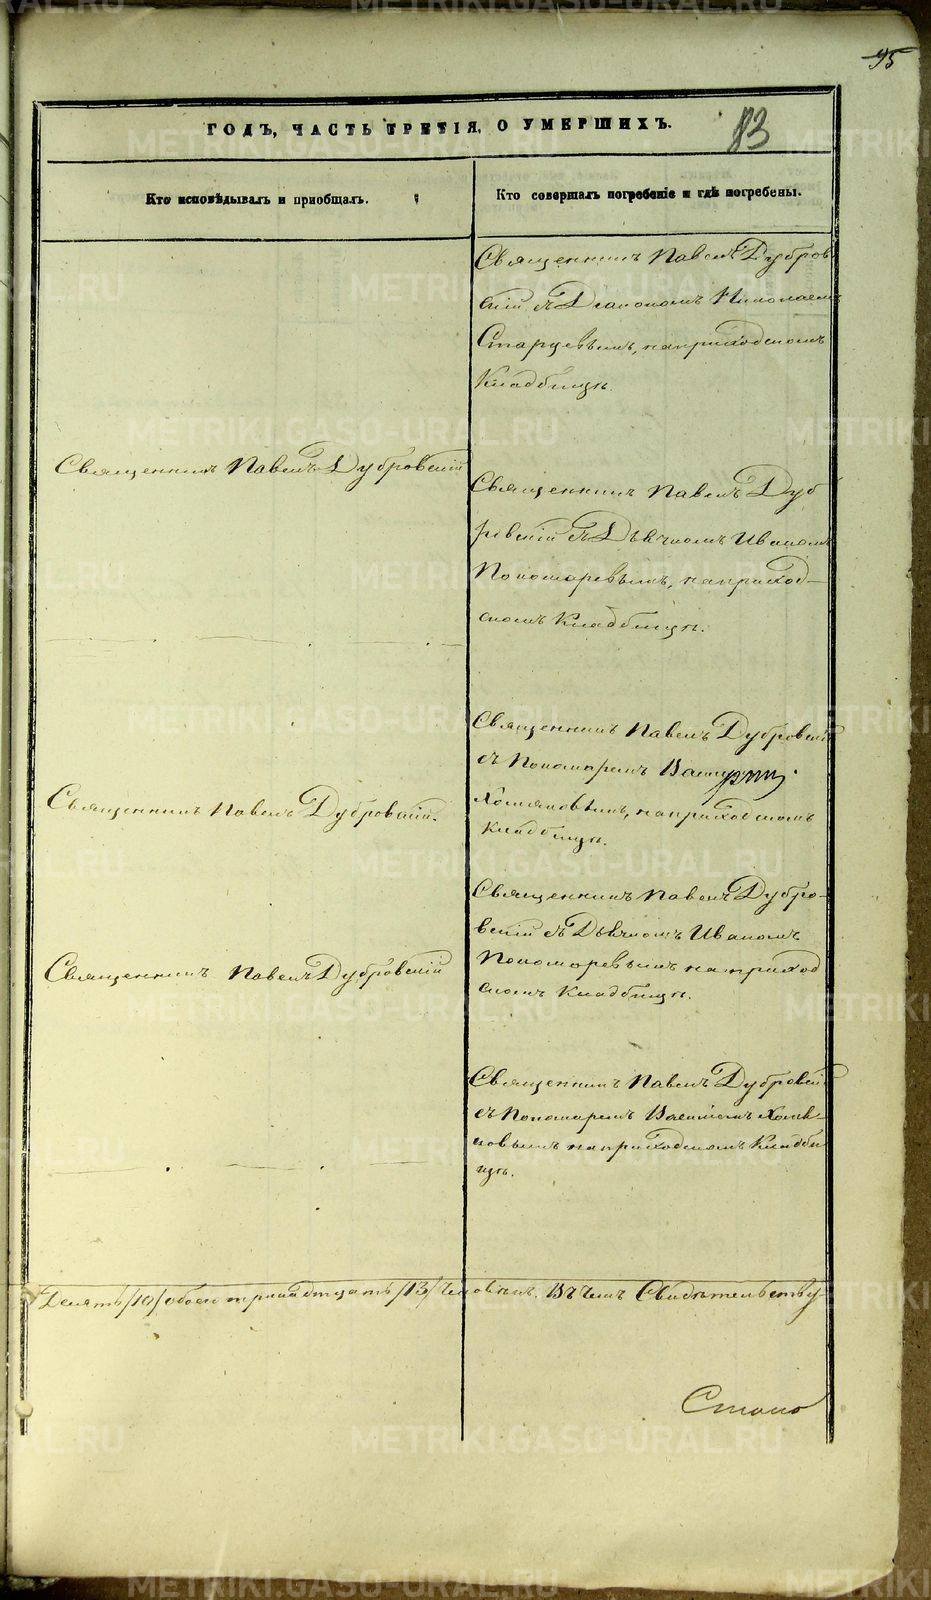 95
ГОДЪ, ЧАСТЬ ТРЕТІЯ, О УМЕРШИХЪ.
83
Кто исповѣдывалъ и пріобщалъ.
Кто совершалъ погребеніе и гдѣ погребены.
Священникъ Павелъ Дубров
скій съ Діакономъ Николаемъ
Старцевымъ, на приходскомъ
Кладбищѣ.
Священникъ Павелъ Дубровскій
Священникъ Павелъ Дуб
ровскій съ Дьячкомъ Иваномъ
Пономаревымъ, на приход-
скомъ Кладбищѣ.
Священникъ Павелъ Дубровскій
съ Пономаремъ
Хомяковымъ, на приходскомъ
Кладбищѣ.
Священникъ Павелъ Дубровскій.
Священникъ Павелъ Дубро-
вскій съ Дьячкомъ Иваномъ
Пономаревымъ на приход
скомъ Кладбищѣ.
Священникъ Павелъ Дубровскій
Священникъ Павелъ Дубровскій
съ Пономаремъ Василіемъ Хомя-
ковымъ на приходскомъ Кладби
щѣ.
/10/ обоего тринадцать /13/ человѣкъ. Въ чемъ Свидѣтельству-
METRIKI.GASO-URAL.RU